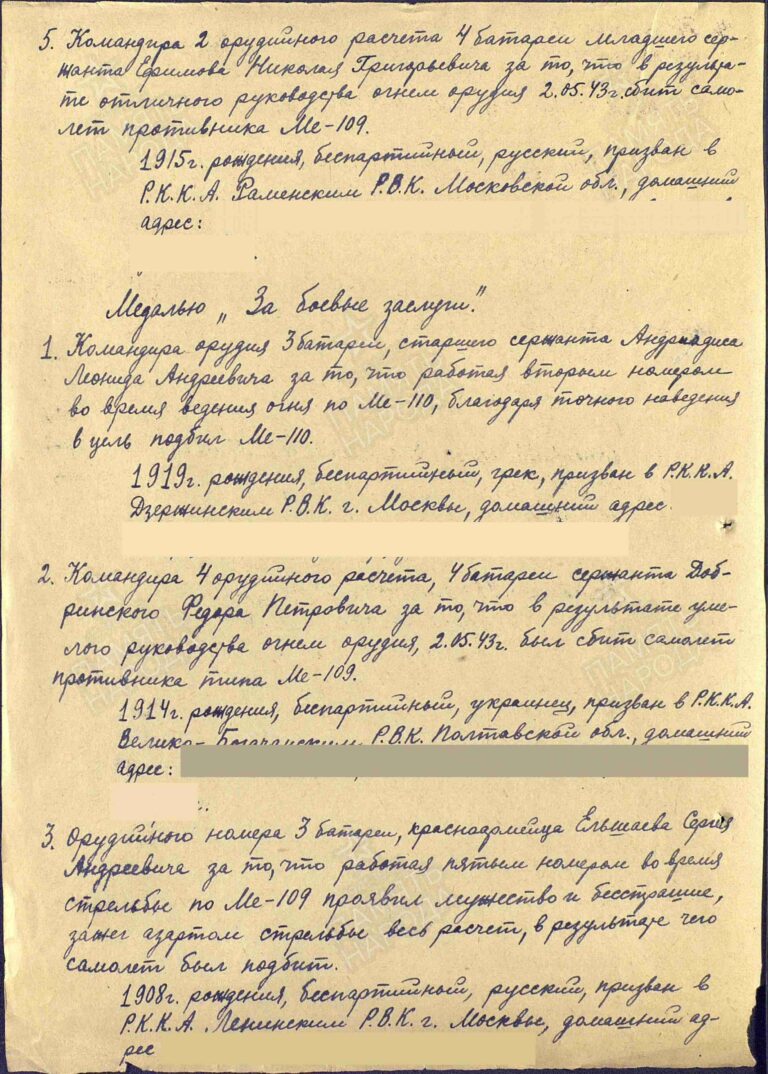 5. Командира 2 орудийного расчета 4 батареи младшего сер-
жанта Ефимова Николая Григорьевича за то, что в результа-
те отличного руководства огнем орудия 2.05.43г. сбит само-
лет противника Ме-109.
1915г. рождения, беспартийный, русский, призван в
Р.К.К.А. Раменским Р.В.К. Московской обл., домашний
адрес:
Медалью „За боевые заслуги".
1. Командира орудия 3 батареи, старшего сержанта Андриадиса
Леонида Андреевича за то, что работая вторым номером
во время ведения огня по Ме-110, благодаря точного наведения
в цель подбил Ме-110.
1919г. рождения, беспартийный, грек, призван в Р.К.К.А.
Дзержинским Р.В.К. г. Москвы, домашний адрес
2. Командира 4 орудийного расчета, 4 батареи сержанта Доб-
ринского Федора Петровича за то, что в результате уме-
лого руководства огнем орудия, 2.05.43г. был сбит самолет
противника типа Ме-109.
1914г. рождения, беспартийный, украинец, призван в Р.К.К.А.
Велико-Багачанским Р.В.К. Полтавской обл., домашний
адрес:
3. Орудийного номера 3 батареи, красноармейца Ельшаева Сергея
Андреевича за то, что работая пятым номером во время
стрельбы по Ме-109 проявил мужество и бесстрашие,
зажег азартом стрельбы весь расчет, в результате чего
самолет был подбит.
1908г. рождения, беспартийный, русский, призван в
Р.К.К.А. Ленинским Р.В.К. г. Москвы, домашний ад-
рес